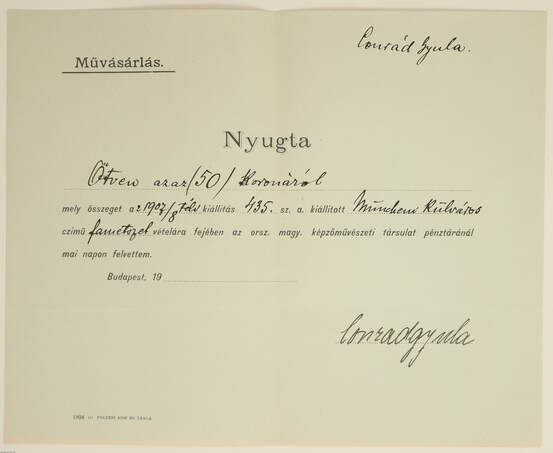 Conrád Gyula.
Művásárlás.
Nyugta
Ötven azaz (50) Koronáról
mely összeget a 1907/8 téli kiállitás 435. sz. a. kiállitott Müncheni Külváros
czimü fametszet vételára fejében az orsz. magy. képzőművészeti társulat pénztáránál
mai napon felvettem.
Budapest, 19
Conrad gyula